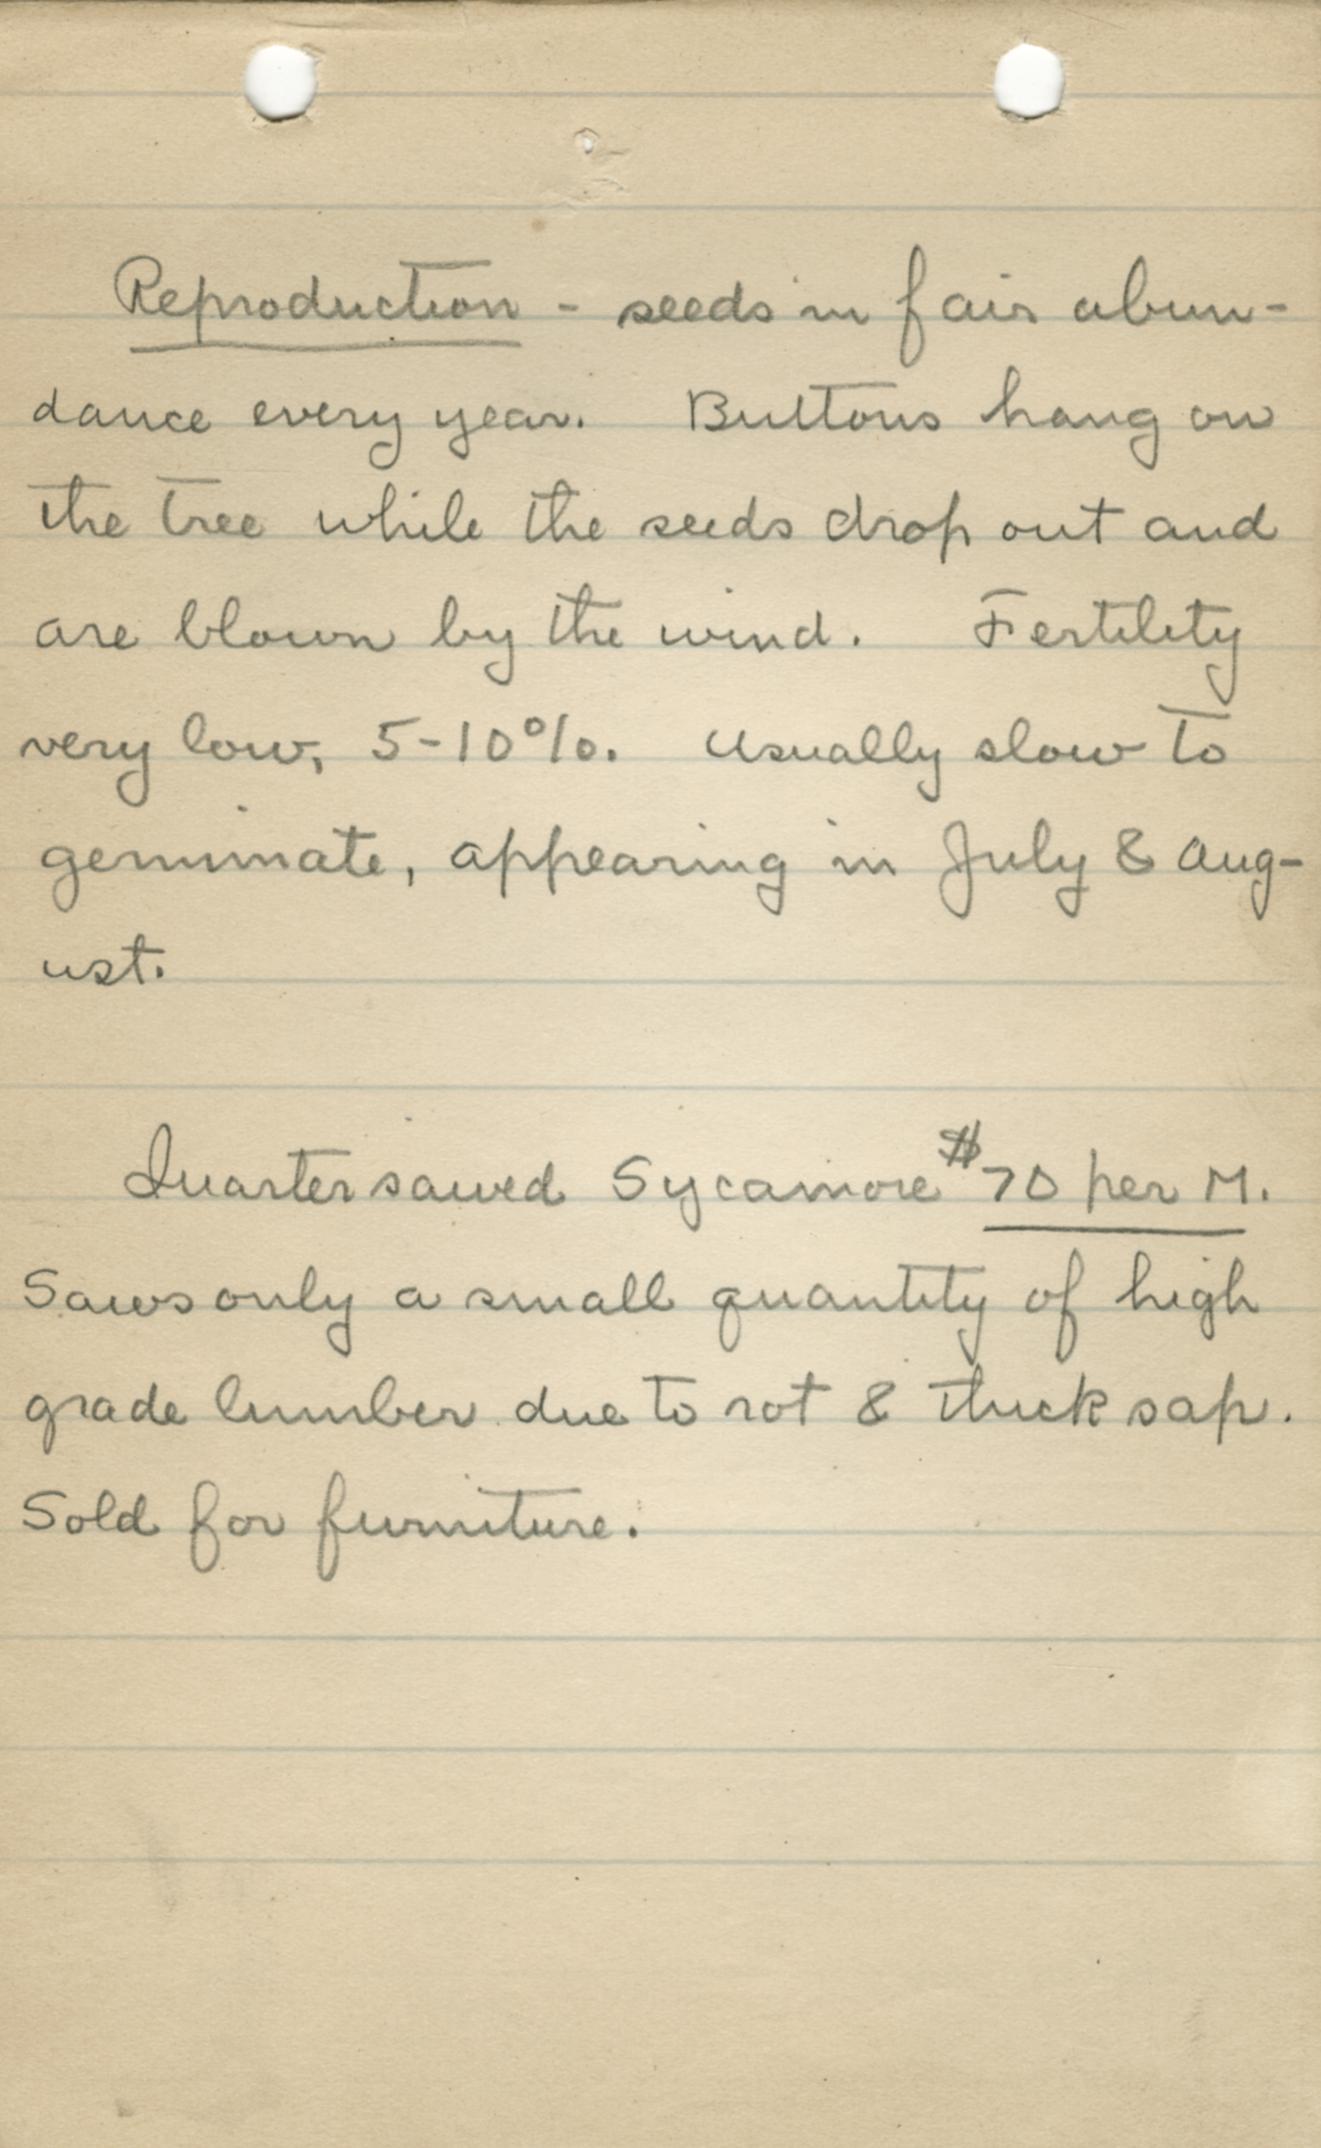 Reproduction - seeds in fair abun-
dance every year. Buttons hang on
the tree while the seeds drop out and
are blown by the wind. Fertility
very low, 5-10%. Usually slow to
germinate, appearing in July & Aug-
ust.
Quarter sawed Sycamore $70 per M.
Saws only a small quantity of high
grade lumber due to rot & thick sap.
Sold for furniture.